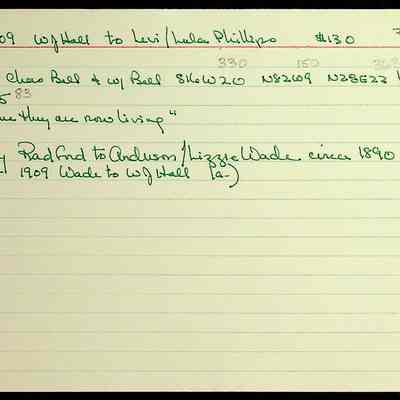 09 WJ Hall to Levi/Lula Phillips $130
330 150 363
Chas Bell & w/ Bell SKeW20 N82W9 N28E22
5 83
they are now living"
Radford to Anderson/Lizzie Wade circa 1890
1909 Wade to WJ Hall (a-)